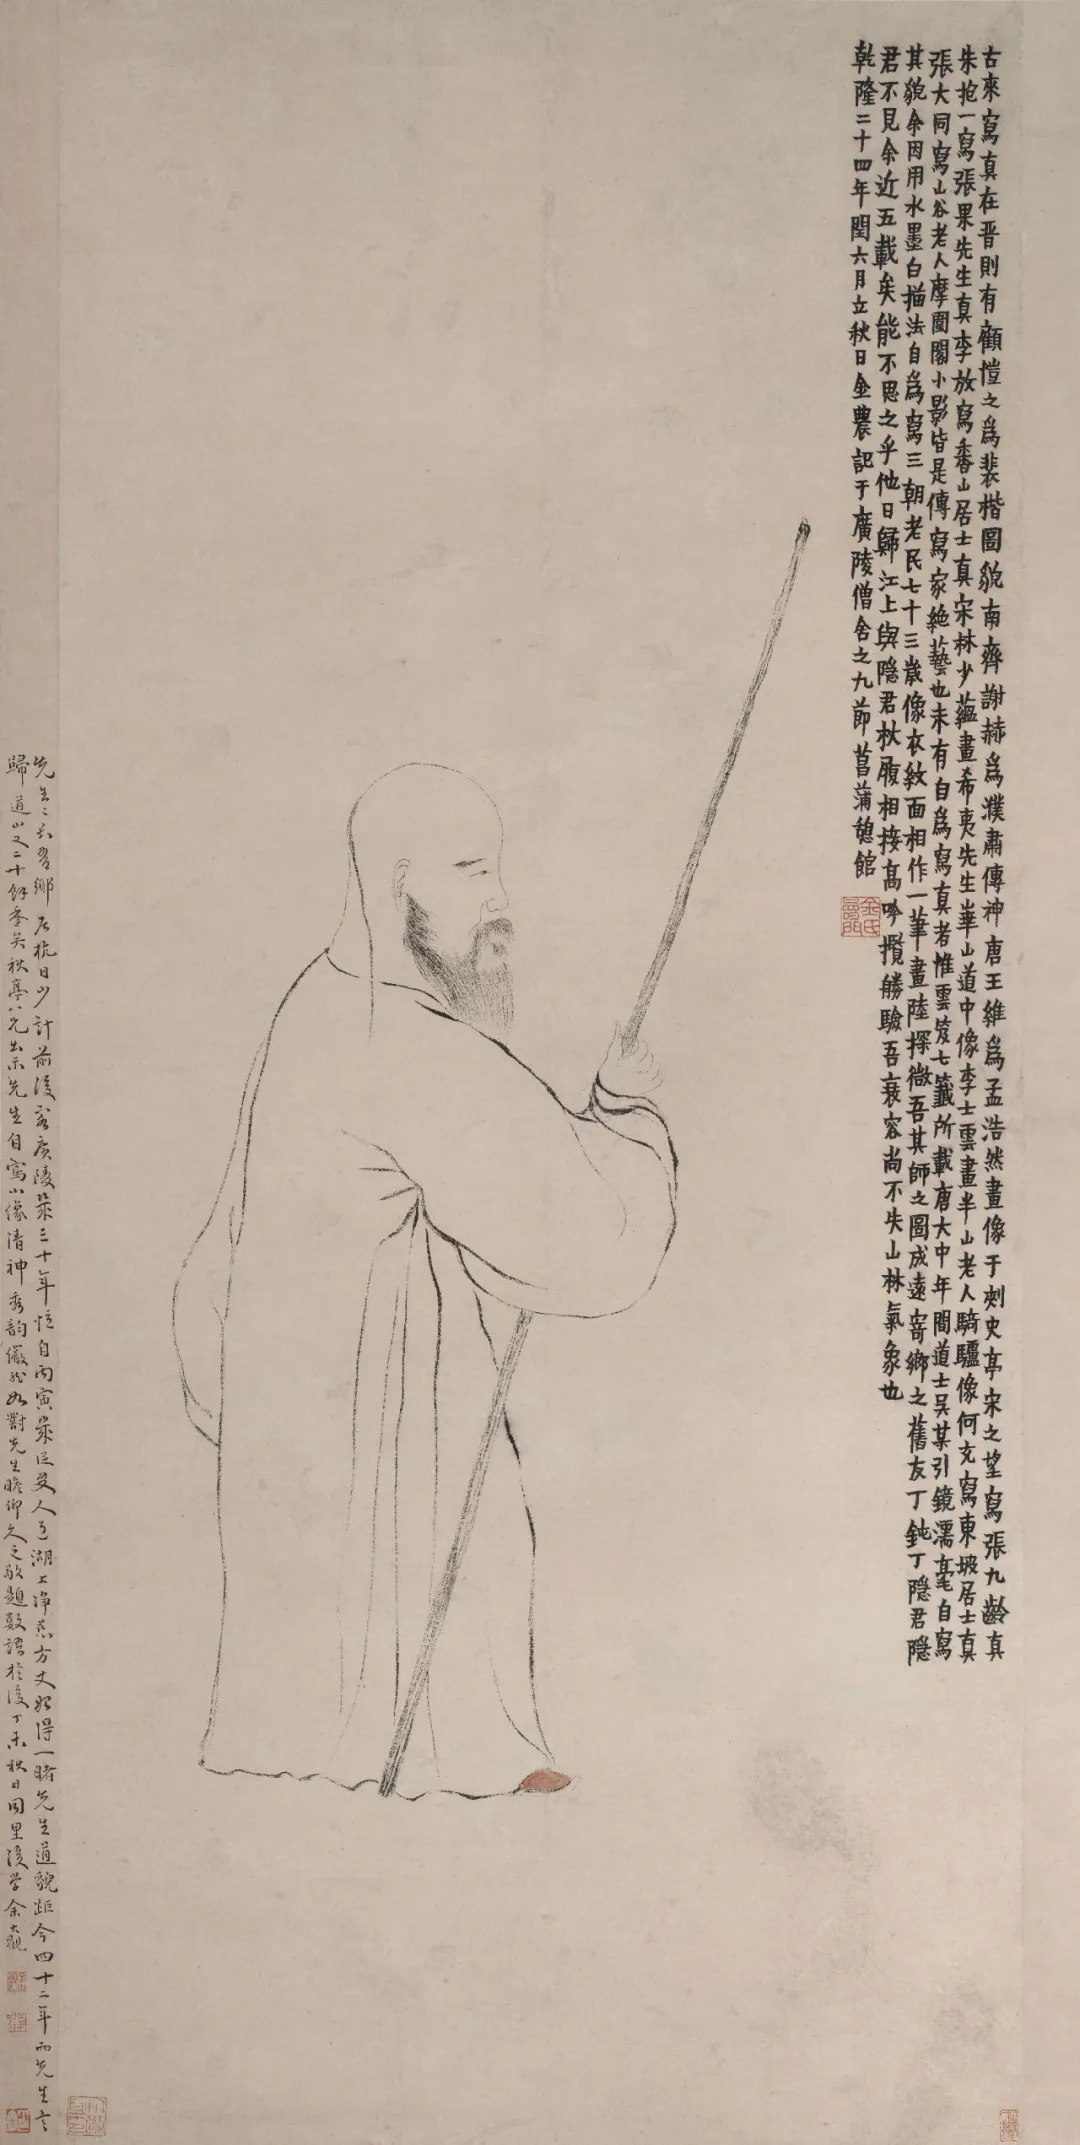 古來寫真在晋則有顧愷之爲裴楷圖貌南齊謝赫爲濮肅傳神唐王維爲孟浩然畫像于刺史亭宋之望寫張九齡真
朱抱一寫張果先生真李放寫香山居士真宋林少蘊畫希夷先生華山道中像李士雲畫半山老人騎驢像何充寫東坡居士真
張大同寫山谷老人摩圍閣小影皆是傳寫家絶藝也未有自爲寫真者惟雲笈七籤所載唐大中年間道士吴某引鏡濡毫自寫
其貌余因用水墨白描法自爲寫三朝老民七十三歲像衣紋面相作一筆畫陸探微吾其師之圖成遠寄鄉之舊友丁鈍丁隱君隱
君不見余近五載矣能不思之乎他日歸江上與隱君杖履相接高吟攬勝驗吾衰容尚不失山林氣象也
乾隆二十四年閏六月立秋日金農記于廣陵僧舍之九節菖蒲憩館
金氏壽門
先生二志吾鄉居杭日少計前後客廣陵幾三十年憶自丙寅歲 人 湖上净慈方丈始得一睹先生道貌距今四十二年而先生之
歸道山又二十餘季矣秋亭八兄出示先生自寫小像清神秀韵儼然如對先生瞻仰久之敬題數語於後丁未秋日同里後學余大觀